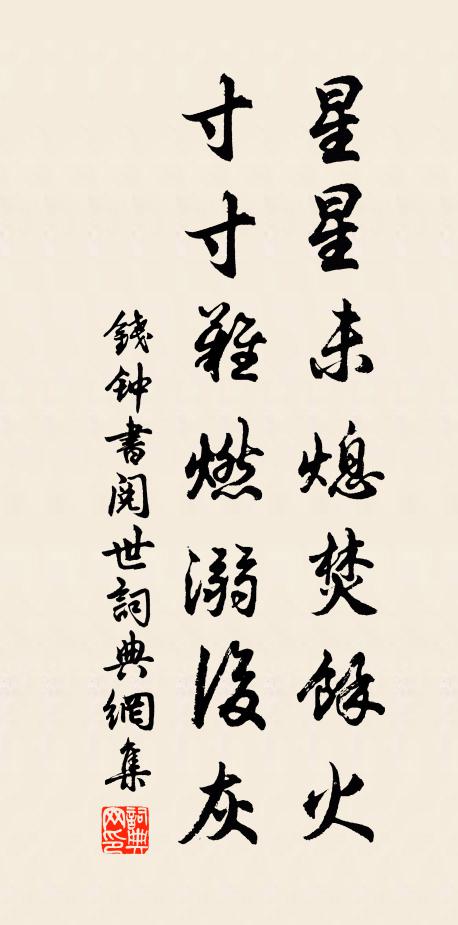 星星未熄焚餘火
寸寸難燃溺後灰
錢钟書閱世詞典網集
詞典網印